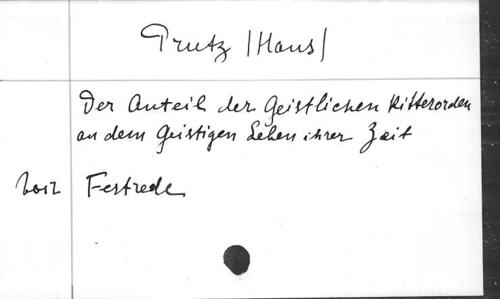 Prutz /Hans/
Der Anteil der Geistlichen Ritterorden
an dem Geistigen Leben ihrer Zeit
Festrede